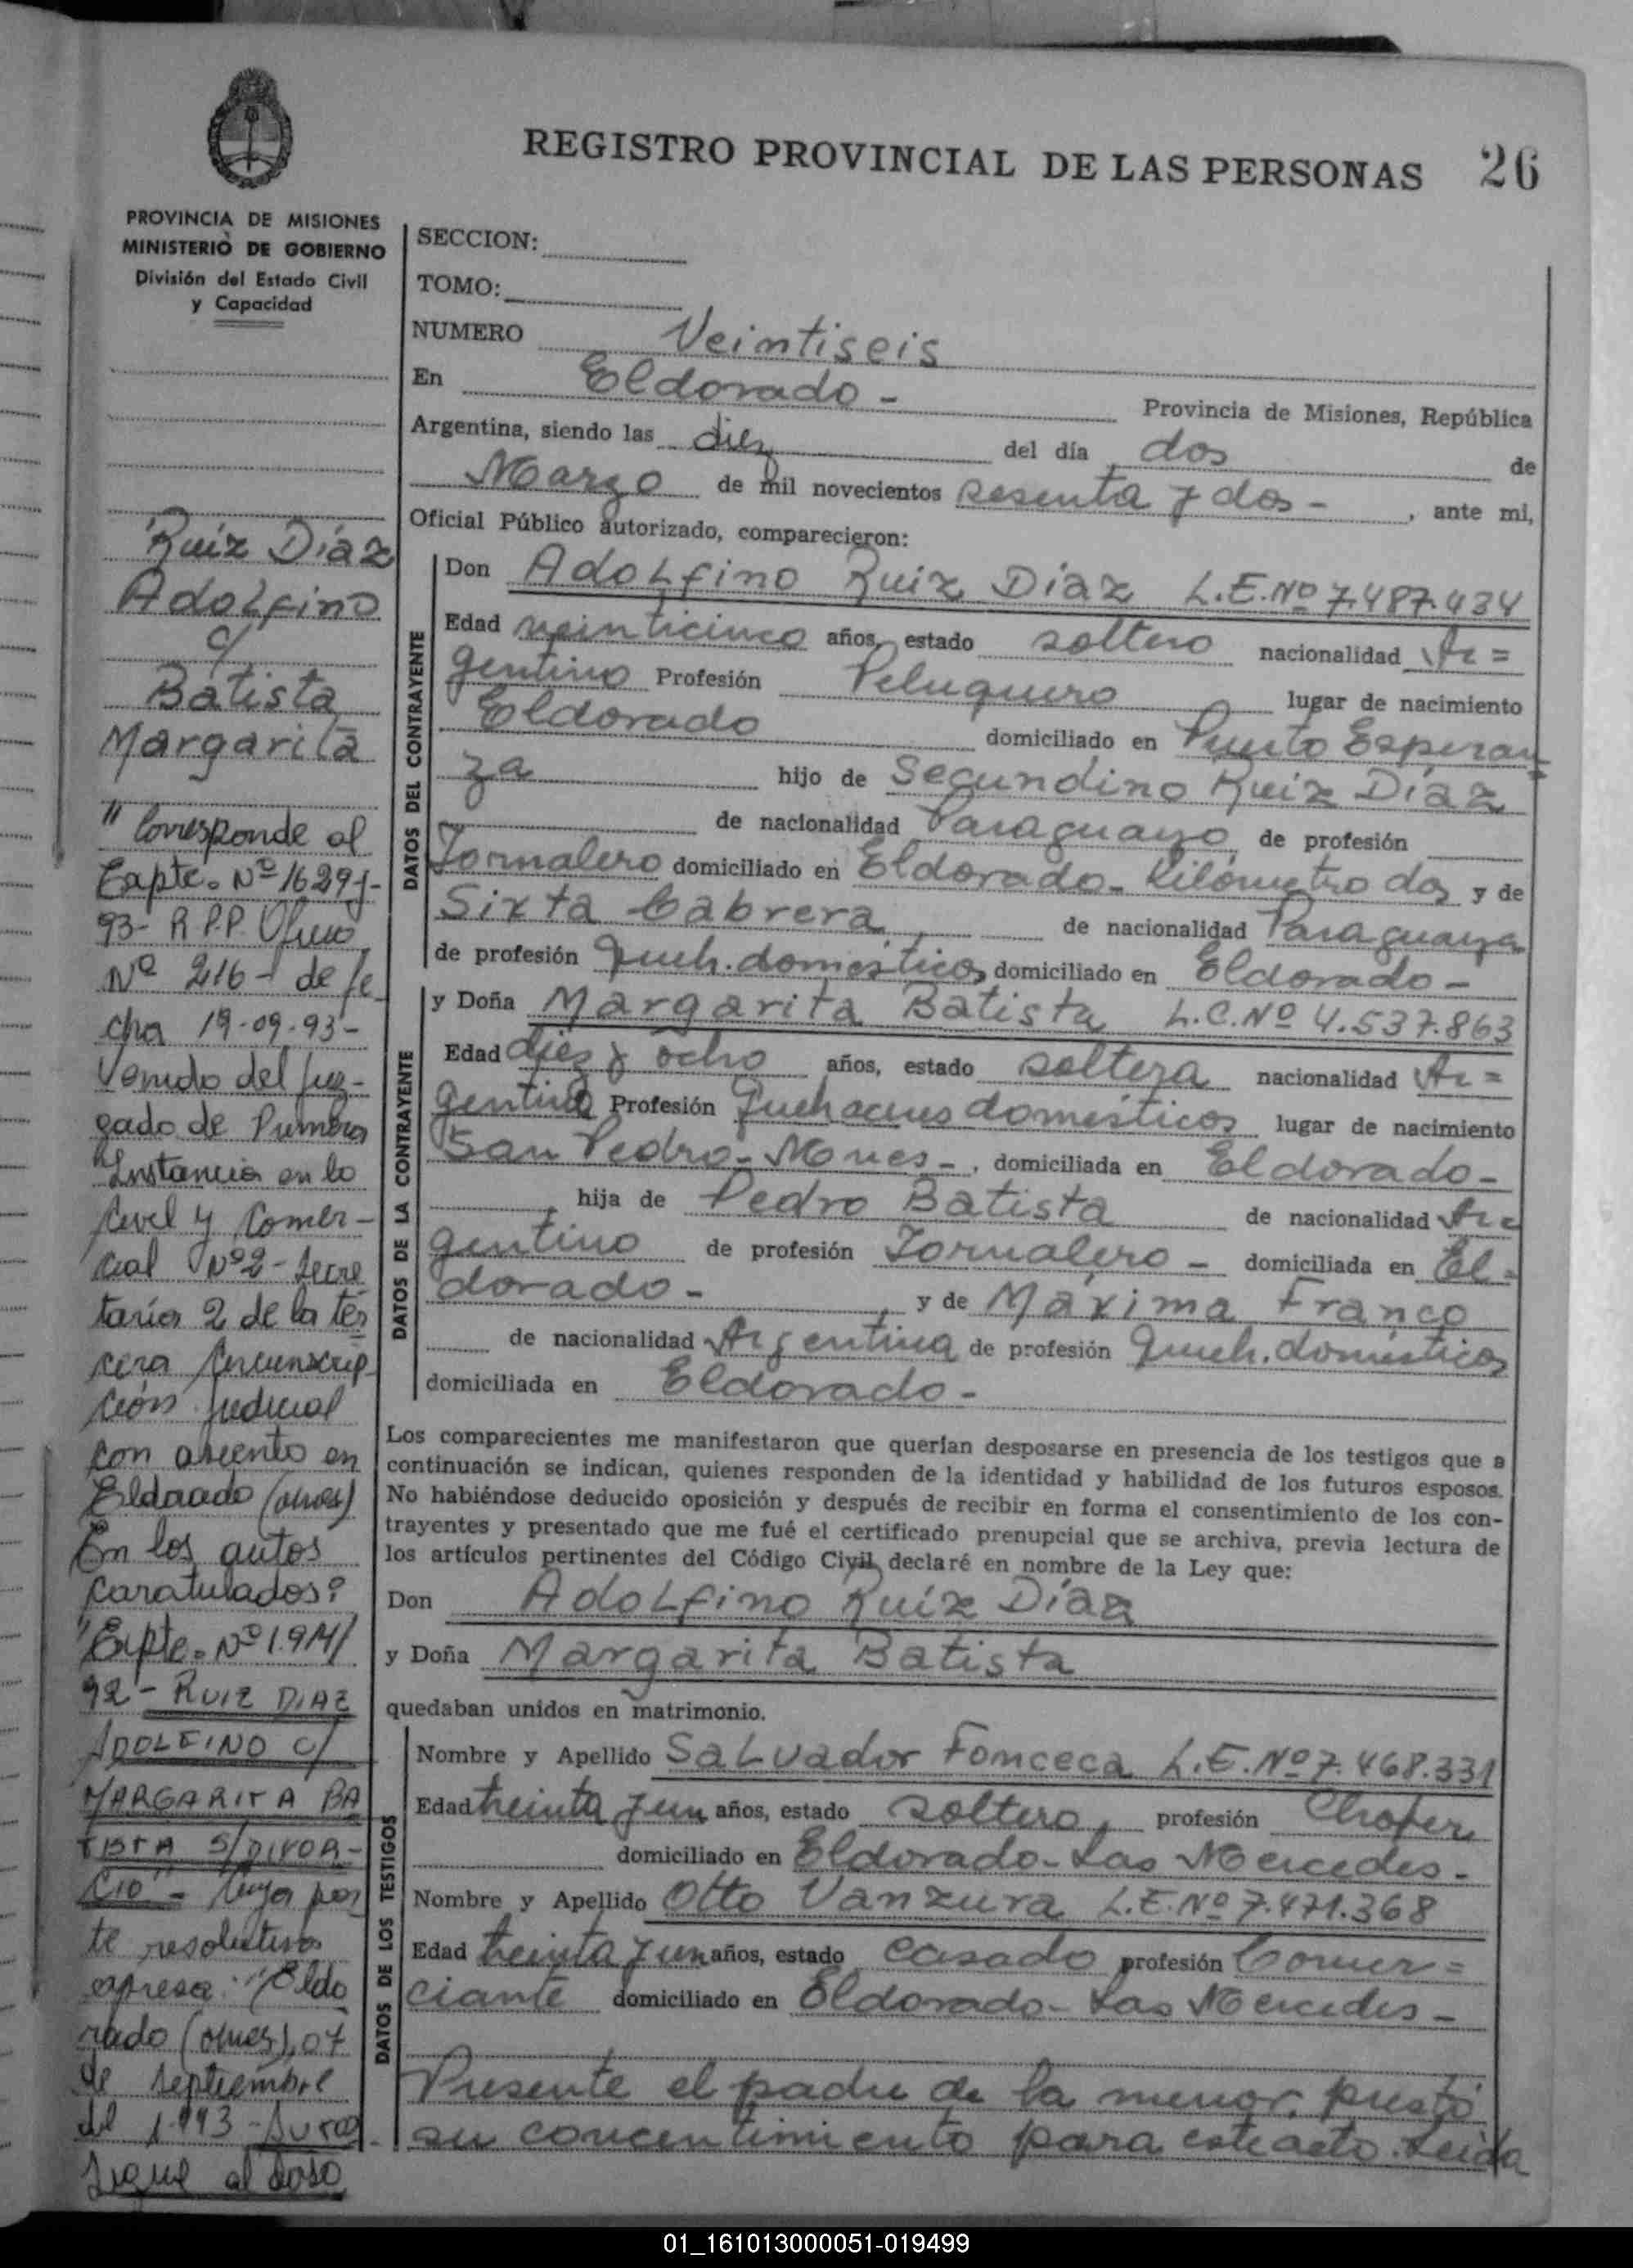 REGISTRO PROVINCIAL DE LAS PERSONAS 26
PROVINCIA DE MISIONES
MINISTERIO DE GOBIERNO
División del Estado Civil
y Capacidad
Ruiz Díaz
Adolfino
c/
Batista
Margarita
"Corresponde al
Expte. Nº 1629
93- R.P.P. Oficio
Nº 216- de fe
cha 19-09-93-
Venido del Juz-
gado de Primera
Instancia en lo
Civil y Comer-
cial Nº 2- Secre
taría 2 de la ter
cera Circunscrip
ción Judicial
con asiento en
Eldorado (Mnes)
En los autos
caratulados:
"Expte. Nº 1.914/
92- RUIZ DIAZ
ADOLFINO C/
MARGARITA BA
TISTA S/DIVOR-
CIO"- Cuya par
te resolutiva
expresa: "Eldo
rado (Mnes), 07
de septiembre
del 1.993-
Sigue al dorso
SECCION:
TOMO:
NUMERO Veintiseis
En Eldorado - Provincia de Misiones, República
Argentina, siendo las diez del día dos de
Marzo de mil novecientos sesenta y dos - , ante mi,
Oficial Público autorizado, comparecieron:
DATOS DEL CONTRAYENTE
Don Adolfino Ruiz Díaz L.E.Nº 7.487.434
Edad veinticinco años, estado soltero nacionalidad Ar=
gentino Profesión Peluquero lugar de nacimiento
Eldorado domiciliado en Puerto Esperan=
za hijo de Segundino Ruiz Díaz
de nacionalidad Paraguayo de profesión
Jornalero domiciliado en Eldorado- Kilómetro dos y de
Sixta Cabrera de nacionalidad Paraguaya
de profesión Queh. domésticos domiciliado en Eldorado-
DATOS DE LA CONTRAYENTE
y Doña Margarita Batista L.C.Nº 4.537.863
Edad diez y ocho años, estado soltera nacionalidad Ar=
gentina Profesión Quehaceres domésticos lugar de nacimiento
San Pedro- Mnes-, domiciliada en Eldorado-
hija de Pedro Batista de nacionalidad Ar=
gentino de profesión Jornalero - domiciliada en El=
dorado- y de Máxima Franco
de nacionalidad Argentina de profesión Queh. domésticos
domiciliada en Eldorado-
Los comparecientes me manifestaron que querían desposarse en presencia de los testigos que a
continuación se indican, quienes responden de la identidad y habilidad de los futuros esposos.
No habiéndose deducido oposición y después de recibir en forma el consentimiento de los con-
trayentes y presentado que me fué el certificado prenupcial que se archiva, previa lectura de
los artículos pertinentes del Código Civil, declaré en nombre de la Ley que:
Don Adolfino Ruíz Díaz
y Doña Margarita Batista
quedaban unidos en matrimonio.
DATOS DE LOS TESTIGOS
Nombre y Apellido Salvador Fonceca L.E.Nº 7.468.331
Edad treinta y un años, estado soltero, profesión Chofer
domiciliado en Eldorado- Las Mercedes-
Nombre y Apellido Otto Vanzura L.E.Nº 7.471.368
Edad treinta y un años, estado casado profesión Comer=
ciante domiciliado en Eldorado- Las Mercedes-
Presente el padre de la menor, prestó
su concentimiento para este acto. Leida
01_161013000051-019499